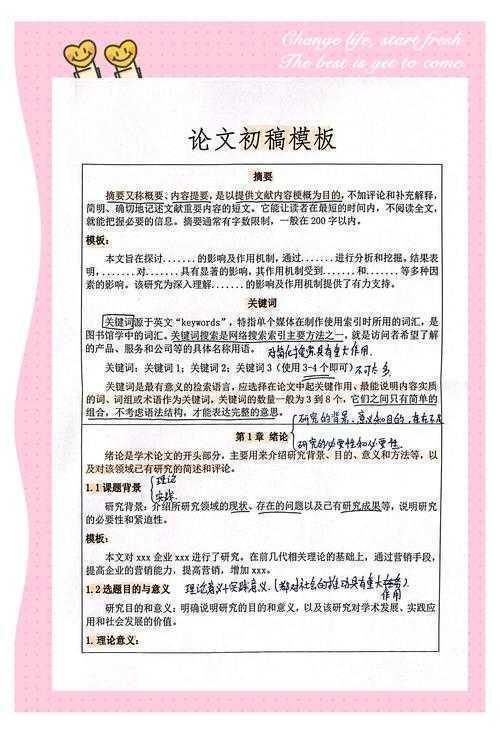 Change life, start fresh
The best is yet to come
论文初稿模板
摘要
摘要又称概要、内容提要，是以提供文献内容梗概为目的，不加评论和补充解释，
简明、确切地记述文献重要内容的短文。它能让读者在最短的时间内，不阅读全文，
就能把握必要的信息。摘要通常有字数限制，一般在 200 字以内。
模板：
本文旨在探讨.......的影响及作用机制，通过.......进行分析和挖掘。结果表
明，.......对.......具有显著的影响，其作用机制受到.......和.......等多种因
素的影响。该研究为深入理解.......的影响及作用机制提供了有力支持。
关键词
关键词源于英文“keywords”，特指单个媒体在制作使用索引时所用的词汇，是
图书馆学中的词汇。关键词搜索是网络搜索索引主要方法之一，就是访问者希望了解
的产品、服务和公司等的具体名称用语。 对简化搜索具有重大作用.
关键词：关键词 1；关键词 2；关键词 3（使用 3-4 个即可）不可太多
关键词是最有意义的检索语言，应选择在论文中起关键作用、最能说明内容实质
的词、词组或术语作为关键词，关键词的数量一般为 3 到 8 个，它们之间只有简单的
组合，不考虑语法结构，才能表达完整的意思。
研究的背景、意义和目的，
第 1 章 绪论
研究的必要性和必要性.
绪论是学术论文的开头部分，主要用来介绍研究背景、目的、意义和方法等，以
及对该领域已有研究的简述和评论。
1.1 课题背景 理论
实践.
研究背景：介绍所研究领域的现状、存在的问题以及已有研究成果等，说明研究
的必要性和紧迫性。
模板：
本文对 xxx 企业 xxx 进行了研究。在前几代相关理论的基础上，通过营销手段，
提高企业的营销能力，提高营销，增加 xxx。
1.2 选题目的与意义 理论意义+实践意义.(都对社会的推动具有重大任务)
作用
研究目的和意义：明确说明研究的目的和意义，以及该研究对学术发展、实践应
用和社会发展的价值。
1. 理论意义：